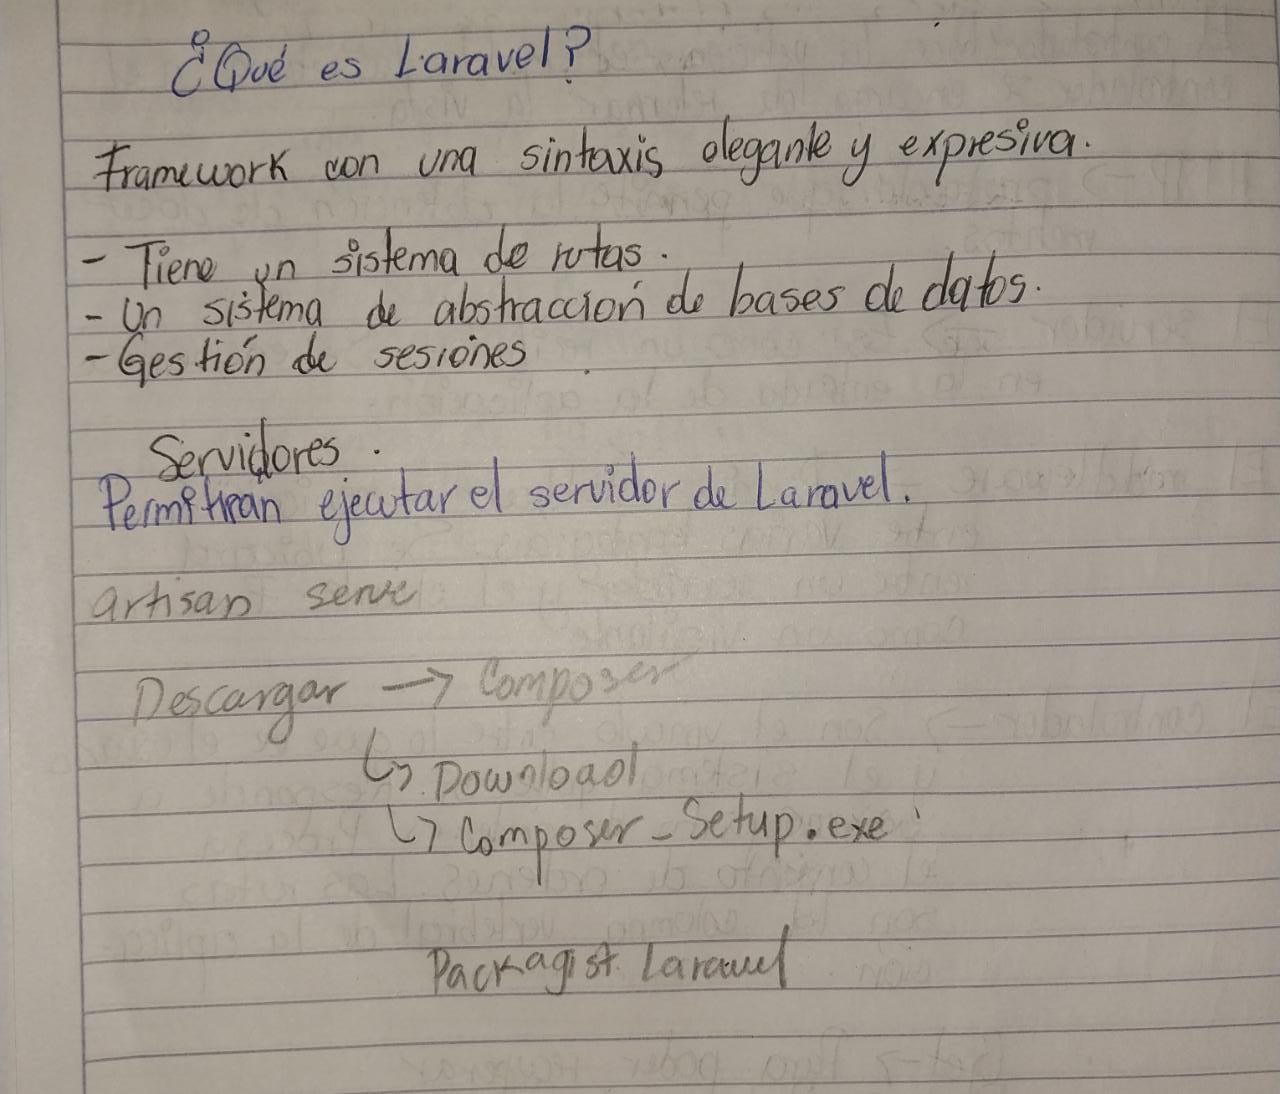 ¿Qué es Laravel?
Framework con una sintaxis elegante y expresiva.
- Tiene un sistema de rutas.
- Un sistema de abstracción de bases de datos.
- Gestión de sesiones.
Servidores.
Permitiran ejecutar el servidor de Laravel.
artisan serve
Descargar → Composer
↳ Download
↳ Composer-Setup.exe
Packagist Laravel